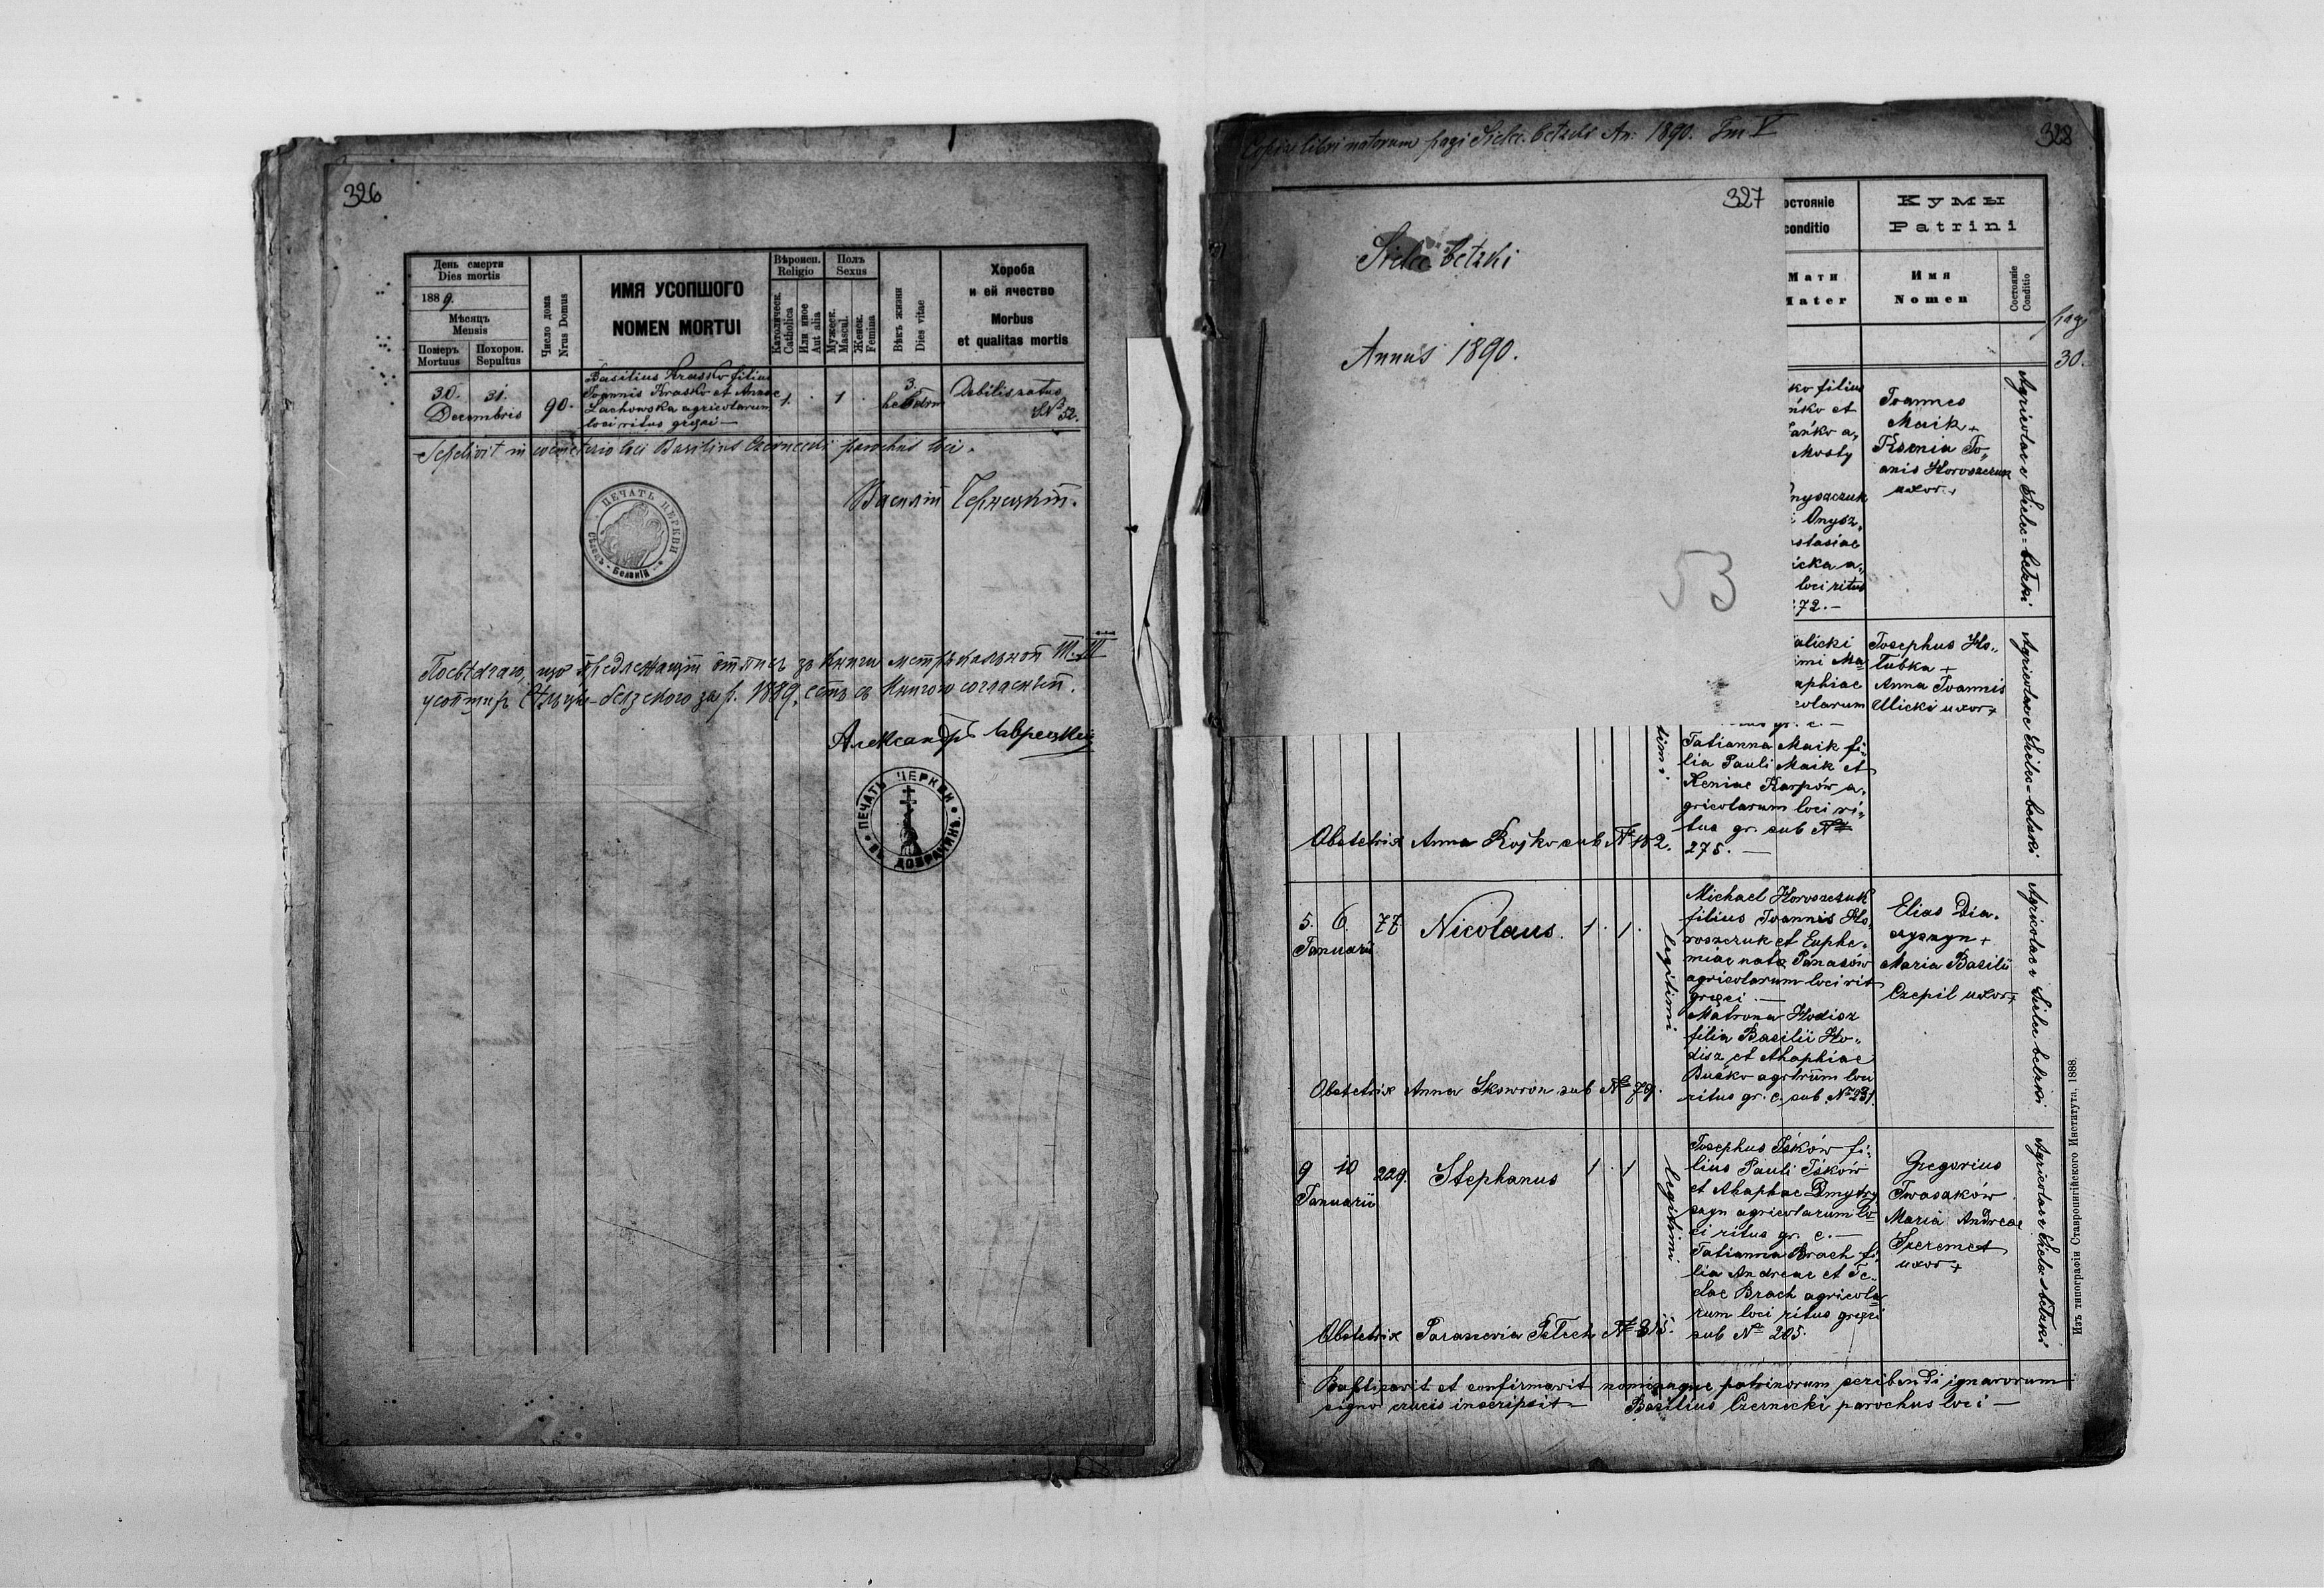 326
День смерти
Dies mortis
1889.
Мѣсяць
Mensis
Померъ
Mortuus
Похорон.
Sepultus
Число дома
Nrus Domus
ИМЯ УСОПШОГО
NOMEN MORTUI
Вѣроисп.
Religio
Католическ.
Catholica
Или иное
Aut alia
Полъ
Sexus
Мужеск.
Mascul.
Женск.
Femina
Вѣкъ жизни
Dies vitae
Хороба
и ей ячество
Morbus
et qualitas mortis
30. 31.
Decembris
90.
Basilius Krasko filius
Joannis Krasko et Annae
Lachowska agricolarum
loci ritus graeci —
1. . 1 .
3.
hebdom
Debilis natus
S.Nº 52.
Sepelivit in coemeterio loci Basilius Czernecki parochus loci.
Василій Чернецкій.
ПЕЧАТЬ ЦЕРКВИ
Посвѣдчаю, що предлежащій отписъ зъ книги метрикальной Т. III
усопшихъ Сѣльця-белзского за р. 1889, есть съ книгою согласный.
Александръ Лаврецкій
ПЕЧАТЬ ЦЕРКВИ
ВЪ ДОБРАЧИНѢ
Copia libri natorum pagi Sielec betzki An: 1890. Tm V
328
327
Sielec betzki
Annus 1890.
53
остояніе
conditio
Мати
Mater
Кумы
Patrini
Имя
Nomen
Состояніе
Conditio
pag.
30.
ko filius
ńko et
ańko a,,
Mosty
nyszczuk
i Onysz,,
stasiae
icka a,,
loci ritus
72. —
Joannes
Maik +
Ksenia Jo,,
anis Horoszczuk
uxor +
Agricolae e Sielec=betzki
alicki
imi Ma
aphiae
colarum
Josephus Ho,,
łubka +
Anna Joannis
Ilicki uxor +
Agricolae e Sielec=betzki
timi
Tatianna Maik fi,,
lia Pauli Maik et
Xeniae Karpów a,,
gricolarum loci ri,,
tus gr. sub Nº
275. —
Obstetrix Anna Kojko sub Nº 182.
5. 6.
Januarii
77
Nicolaus.
1 . 1 .
legitimi
Michael Horoszczuk
filius Joannis Ho,,
roszczuk et Euphe,,
miae nata Panasów
agricolarum loci rit
græci. —
Matrona Hodisz
filia Basilii Ho,,
disz et Ahaphiae
Buśko agrtrum loci
ritus gr. c. sub Nº 231.
Elias Dia,,
czyszyn +
Maria Basilii
Czepil uxor +
Agricolae e Sielec betzki
Obstetrix Anna Skowron sub Nº 79.
9 10
Januarii
229.
Stephanus
1 . 1
legitimi
Josephus Iśków fi,,
lius Pauli Iśków
et Ahaphae Dmytry
szyn agricolarum lo
ci ritus gr. c. —
Tatianna Brach fi
lia Andreae et Te,,
clae Brach agricola
rum loci ritus græci
sub Nº 205.
Gregorius
Iwasaków
Maria Andreae
Szeremet
uxor +
Agricolae e Sielec=betzki
Obstetrix Parascevia Pełech Nº 315.
Baptizavit et confirmavit nominaque patrinorum scribendi ignarorum
signo crucis inscripsit — Basilius Czernecki parochus loci —
Изъ типографіи Ставропигійского Института, 1888.